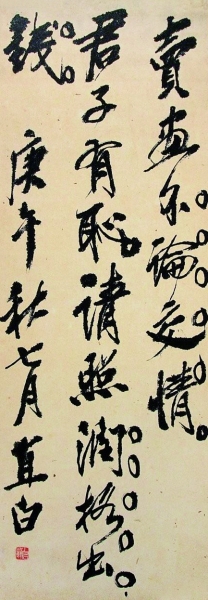 賣畫不論交情
君子有恥請照潤格出
錢 庚午秋七月直白